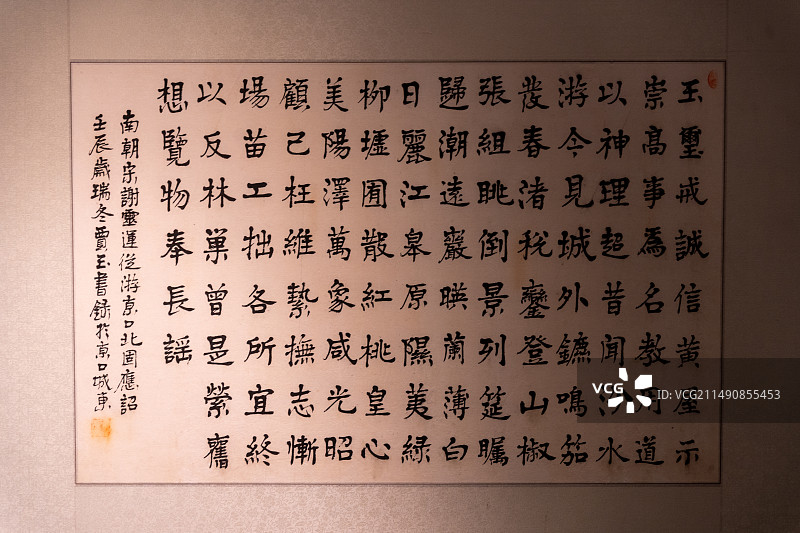 玉璽戒誠信黃屋示
崇高事為名教用道
以神理超昔聞汾水
游今見城外鑣鳴笳
發春渚稅鑾登山椒
張組眺倒景列筵矚
歸潮遠巖暎蘭薄白
日麗江皋原隰荑綠
柳墟囿散紅桃皇心
美陽澤萬象咸光昭
顧己枉維縶撫志慚
場苗工拙各所宜終
以反林巢曾是縈舊
想覽物奉長謠
南朝宋謝靈運從游京口北固應詔
壬辰歲瑞冬賈玉書錄於京口城東
VCG
ID: VCG211490855453